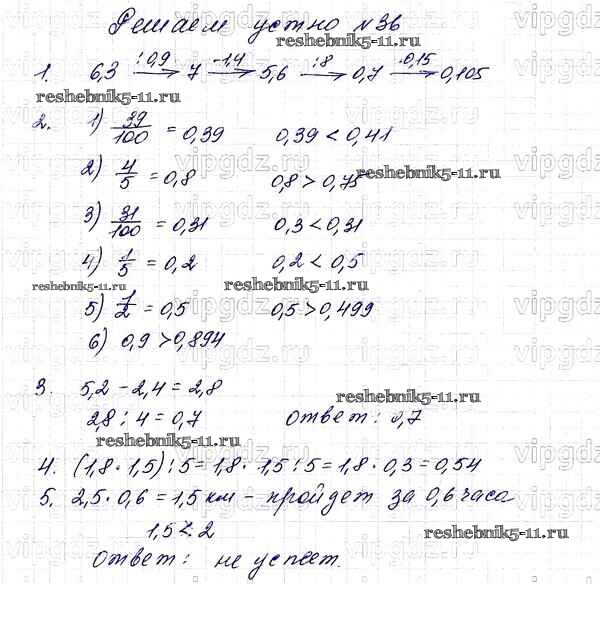 Решаем устно №36
reshebnik5-11.ru
1. 6,3 :0,9→ 7 -1,4→ 5,6 :8→ 0,7 ·0,15→ 0,105
reshebnik5-11.ru
2. 1) 39/100 = 0,39 0,39 < 0,41
2) 4/5 = 0,8 0,8 > 0,75
reshebnik5-11.ru
3) 31/100 = 0,31 0,3 < 0,31
4) 1/5 = 0,2 0,2 < 0,5
reshebnik5-11.ru reshebnik5-11.ru
5) 1/2 = 0,5 0,5 > 0,499
6) 0,9 > 0,894
3. 5,2 - 2,4 = 2,8
reshebnik5-11.ru
2,8 : 4 = 0,7 Ответ: 0,7
reshebnik5-11.ru
4. (1,8 · 1,5) : 5 = 1,8 · 1,5 : 5 = 1,8 · 0,3 = 0,54
5. 2,5 · 0,6 = 1,5 км - пройдет за 0,6 часа
1,5 < 2
reshebnik5-11.ru
Ответ: не успеет.